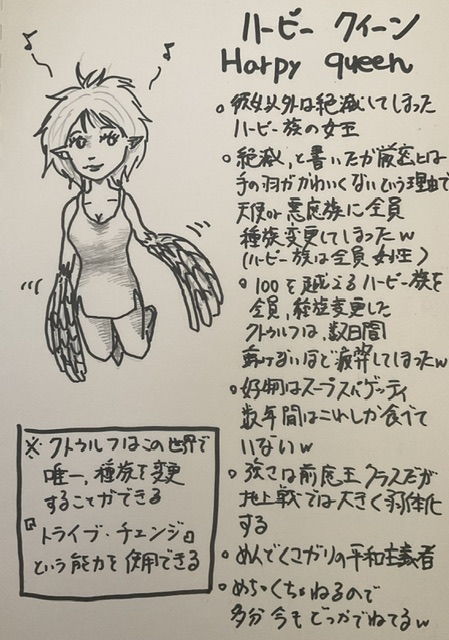 ハーピー クイーン
Harpy queen
。彼女以外は絶滅してしまった
ハーピー族の女王
。絶滅、と書いたが厳密には
手の羽がかわいくないという理由で
天使or悪魔族に全員
種族変更してしまったw
(ハーピー族は全員女性)
。100を越えるハーピー族を
全員、種族変更した
クトゥルフは、数日間
動けないほど疲弊してしまったw
。好物はスープスパゲッティ
数年間はこれしか食べて
いないw
。強さは前魔王クラスだが
地上戦では大きく弱体化
する
。めんどくさがりの平和主義者
。めちゃくちゃねるので
多分今もどっかでねてるw
※クトゥルフはこの世界で
唯一、種族を変更
することができる
『トライブ・チェンジ』
という能力を使用できる